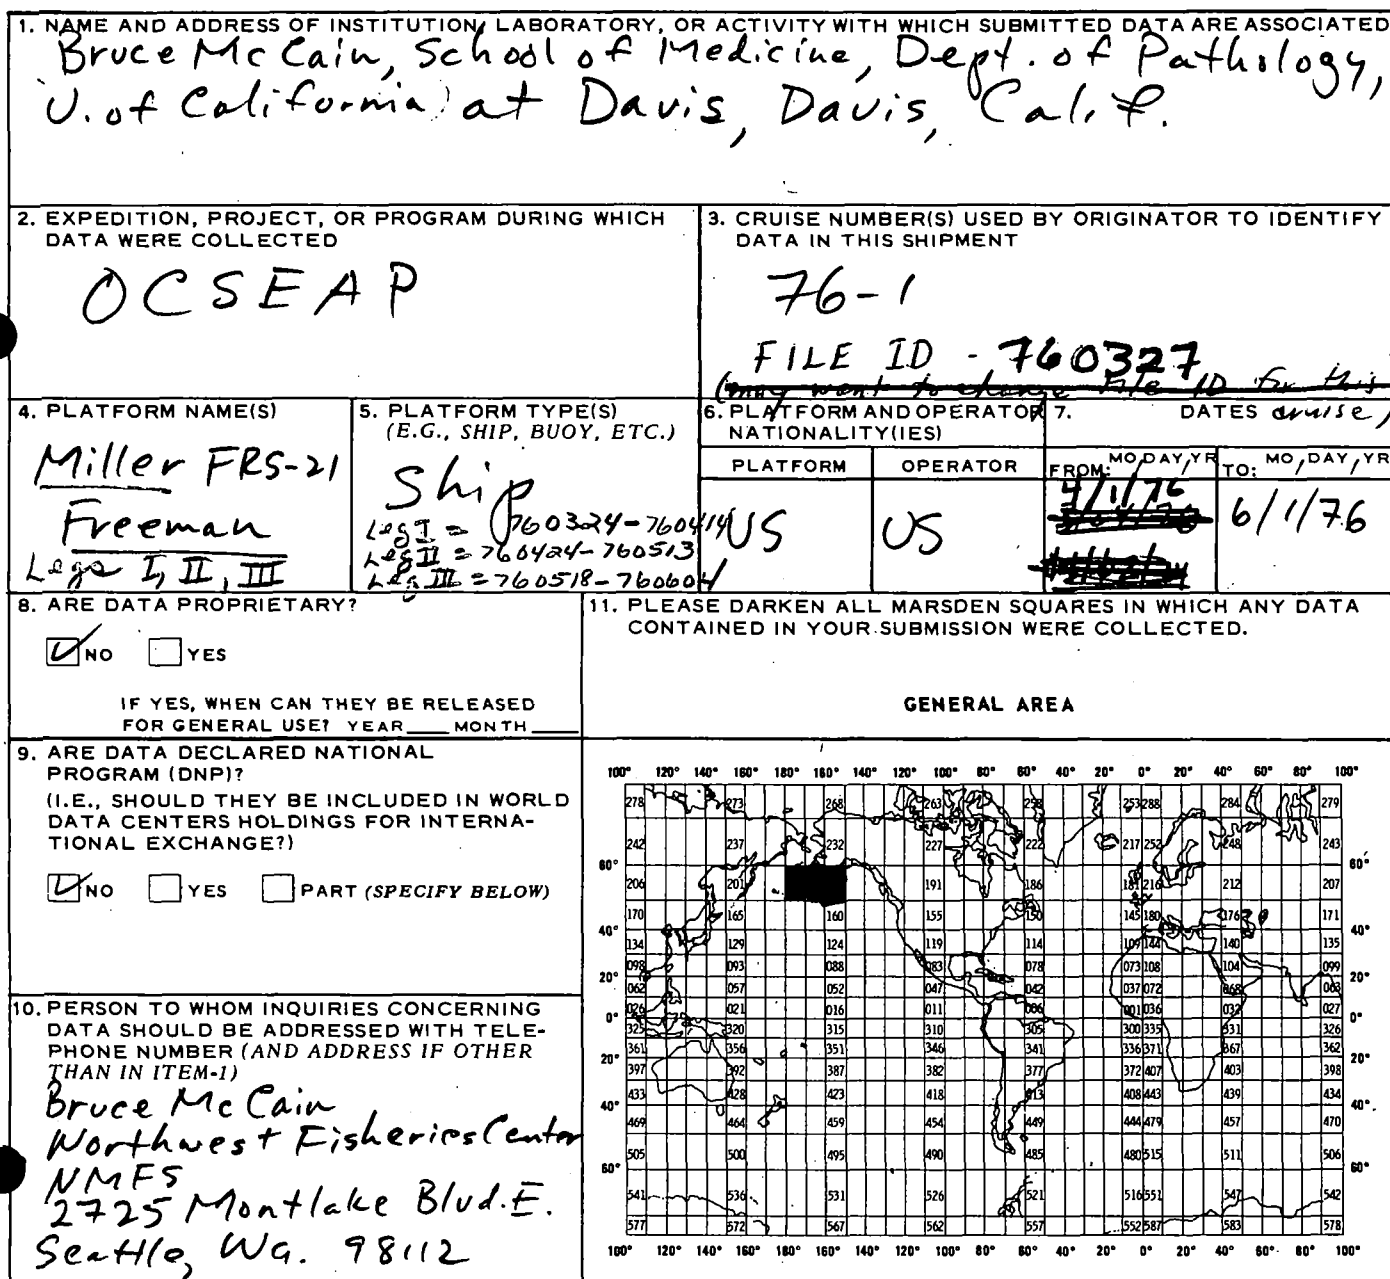 1. NAME AND ADDRESS OF INSTITUTION, LABORATORY, OR ACTIVITY WITH WHICH SUBMITTED DATA ARE ASSOCIATED
Bruce McCain, School of Medicine, Dept. of Pathology,
U. of California at Davis, Davis, Calif.
2. EXPEDITION, PROJECT, OR PROGRAM DURING WHICH
DATA WERE COLLECTED
OCSEAP
3. CRUISE NUMBER(S) USED BY ORIGINATOR TO IDENTIFY
DATA IN THIS SHIPMENT
76-1
FILE ID - 760327
(may want to change File ID for this
cruise)
4. PLATFORM NAME(S)
Miller FRS-21
Freeman
Legs I, II, III
5. PLATFORM TYPE(S)
(E.G., SHIP, BUOY, ETC.)
Ship
Leg I = 760324-760414
Leg II = 760424-760513
Leg III = 760518-760604
6. PLATFORM AND OPERATOR
NATIONALITY(IES)
PLATFORM OPERATOR
US US
7. DATES
FROM: MO,DAY,YR TO: MO,DAY,YR
4/1/76 6/1/76
8. ARE DATA PROPRIETARY?
NO YES
IF YES, WHEN CAN THEY BE RELEASED
FOR GENERAL USE? YEAR____ MONTH____
9. ARE DATA DECLARED NATIONAL
PROGRAM (DNP)?
(I.E., SHOULD THEY BE INCLUDED IN WORLD
DATA CENTERS HOLDINGS FOR INTERNA-
TIONAL EXCHANGE?)
NO YES PART (SPECIFY BELOW)
10. PERSON TO WHOM INQUIRIES CONCERNING
DATA SHOULD BE ADDRESSED WITH TELE-
PHONE NUMBER (AND ADDRESS IF OTHER
THAN IN ITEM-1)
Bruce McCain
Northwest Fisheries Center
NMFS
2725 Montlake Blvd. E.
Seattle, Wa. 98112
11. PLEASE DARKEN ALL MARSDEN SQUARES IN WHICH ANY DATA
CONTAINED IN YOUR SUBMISSION WERE COLLECTED.
GENERAL AREA
100° 120° 140° 160° 180° 160° 140° 120° 100° 80° 60° 40° 20° 0° 20° 40° 60° 80° 100°
278 273 268 263 258 253 288 284 279
242 237 232 227 222 217 252 248 243
60° 60°
206 201 191 186 181 216 212 207
170 165 160 155 150 145 180 176 171
40° 40°
134 129 124 119 114 109 144 140 135
098 093 088 083 078 073 108 104 099
20° 20°
062 057 052 047 042 037 072 068 063
026 021 016 011 006 001 036 032 027
0° 0°
325 320 315 310 305 300 335 331 326
361 356 351 346 341 336 371 367 362
20° 20°
397 392 387 382 377 372 407 403 398
433 428 423 418 413 408 443 439 434
40° 40°
469 464 459 454 449 444 479 457 470
505 500 495 490 485 480 515 511 506
60° 60°
541 536 531 526 521 516 551 547 542
577 572 567 562 557 552 587 583 578
100° 120° 140° 160° 180° 160° 140° 120° 100° 80° 60° 40° 20° 0° 20° 40° 60° 80° 100°